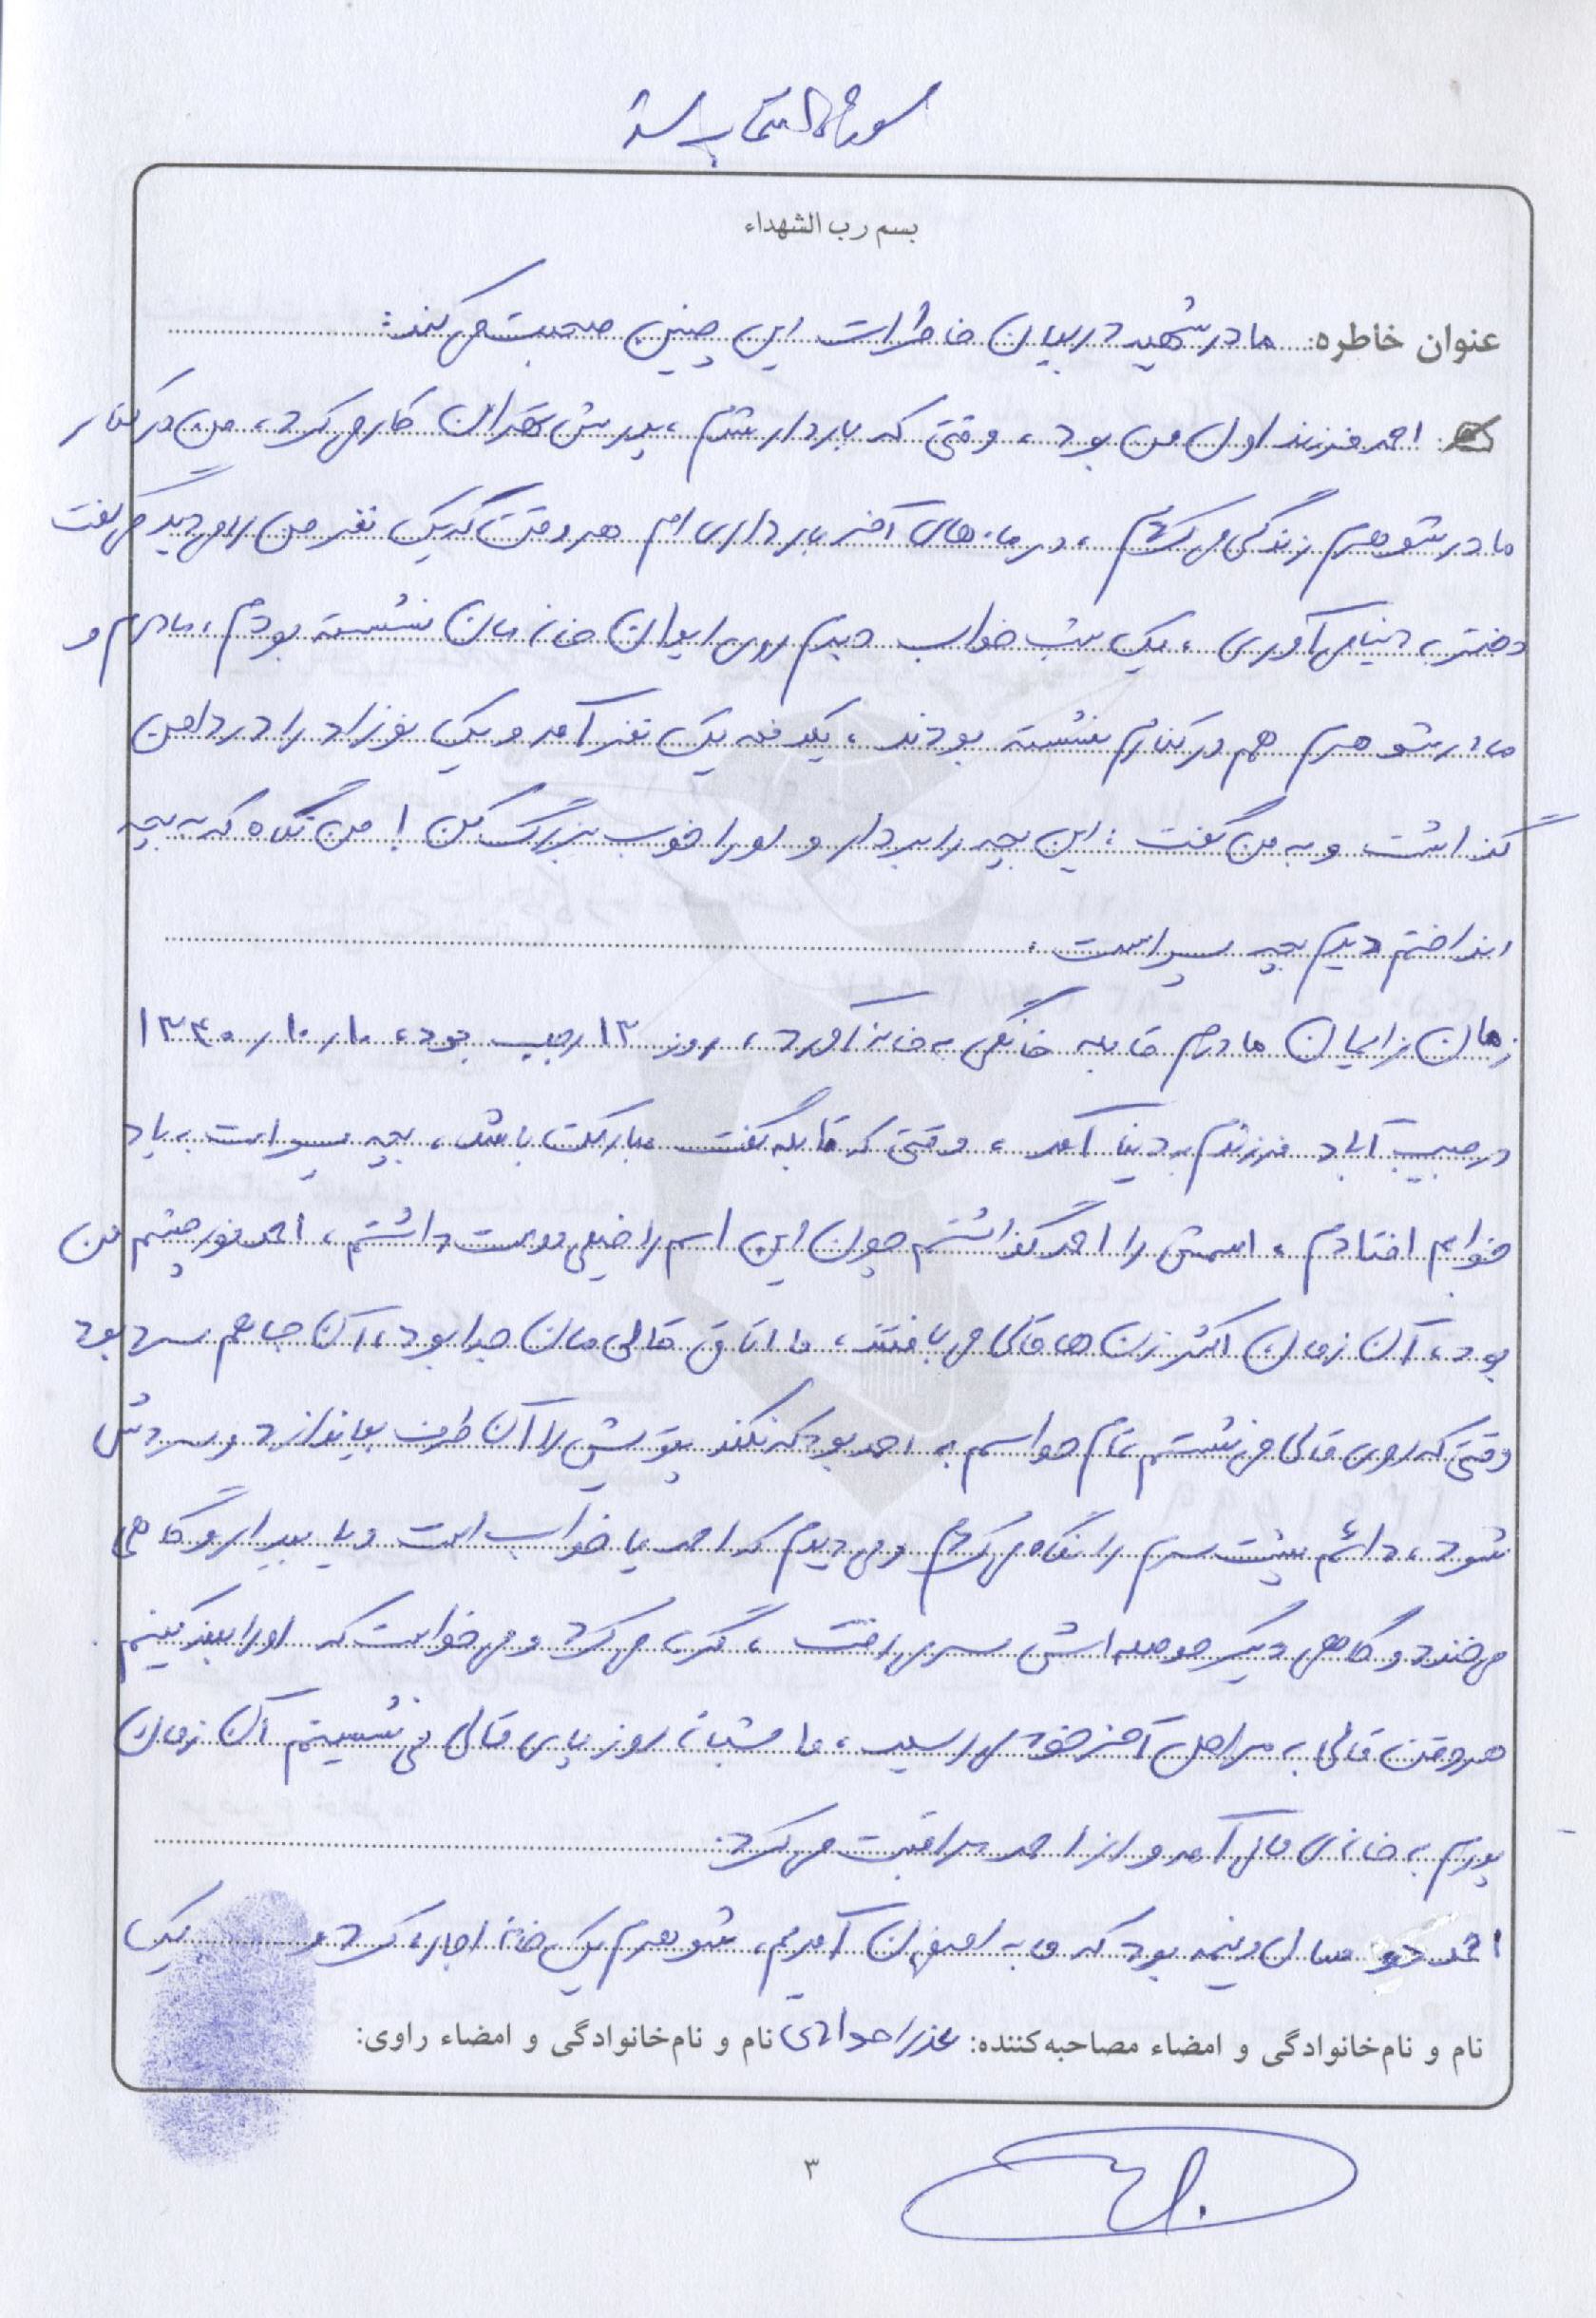 بسم رب الشهداء
عنوان خاطره: مادر شهید در بیان خاطرات این چنین صحبت می‌کند:
احمد فرزند اول من بود، وقتی که باردار شدم، پدرش تهران کار می‌کرد، من در کنار
مادر شوهرم زندگی می‌کردم، در ماه‌های آخر بارداری‌ام هر وقت که یک نفر من را می‌دید می‌گفت
دختر به دنیا می‌آوری، یک شب خواب دیدم روی ایوان خانه‌مان نشسته بودم، مادرم و
مادر شوهرم هم در کنارم نشسته بودند، یکدفعه یک نفر آمد و یک نوزاد را در دامن
گذاشت و به من گفت: این بچه را بردار و او را خوب بزرگ کن! من نگاه که به بچه
انداختم دیدم بچه پسر است.
زمان زایمان مادرم قابله خانگی به خانه آورد، روز ۱۳ رجب بود، ۱۳۴۰/۱۰/۱۰
در حبیب‌آباد فرزندم به دنیا آمد، وقتی که قابله گفت مبارکت باشد، بچه پسر است به یاد
خوابم افتادم، اسمش را احمد گذاشتم چون این اسم را خیلی دوست داشتم، احمد نور چشم من
بود، آن زمان اکثر زن‌ها قالی می‌بافتند، ما اتاق قالی‌مان جدا بود، آن جا هم سرد بود
وقتی که روی قالی می‌نشستم تمام حواسم به احمد بود که نکند پتویش را آن طرف بیاندازد و سردش
شود، دائم پشت سرم را نگاه می‌کردم و می‌دیدم که احمد یا خواب است و یا بیدار و گاهی
می‌خندد و گاهی دیگر حوصله‌اش سر می‌رفت، گریه می‌کرد و می‌خواست که او را بغل کنیم
هر وقت قالی به مراحل آخر خود می‌رسید، ما شبانه روز پای قالی می‌نشستیم آن زمان
پدرم به خانه‌ی مان آمد و از احمد مراقبت می‌کرد.
احمد دو سال و نیمه بود که ما به اصفهان آمدیم، شوهرم یک خانه اجاره کرد و یک
نام و نام‌خانوادگی و امضاء مصاحبه‌کننده: عذرا نام و نام‌خانوادگی و امضاء راوی:
۳